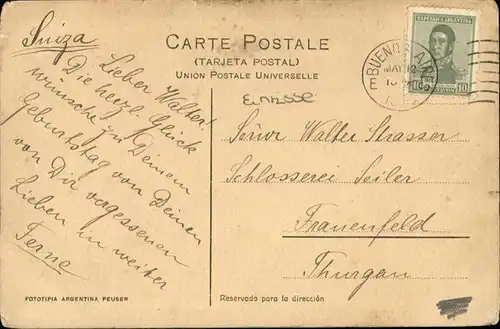 Suiza
CARTE POSTALE
(TARJETA POSTAL)
UNION POSTALE UNIVERSELLE
REPUBLICA ARGENTINA
10 10
BUENOS AIRES
Lieber Walter!
Die herzl. Glück
wünsche zu Deinem
Geburtstag von Deinen
von Dir vergessenen
Lieben in weiter
Ferne
Señor Walter Strasser
Schlosserei Seiler
Frauenfeld
Thurgau
FOTOTIPIA ARGENTINA PEUSER
Reservado para la dirección